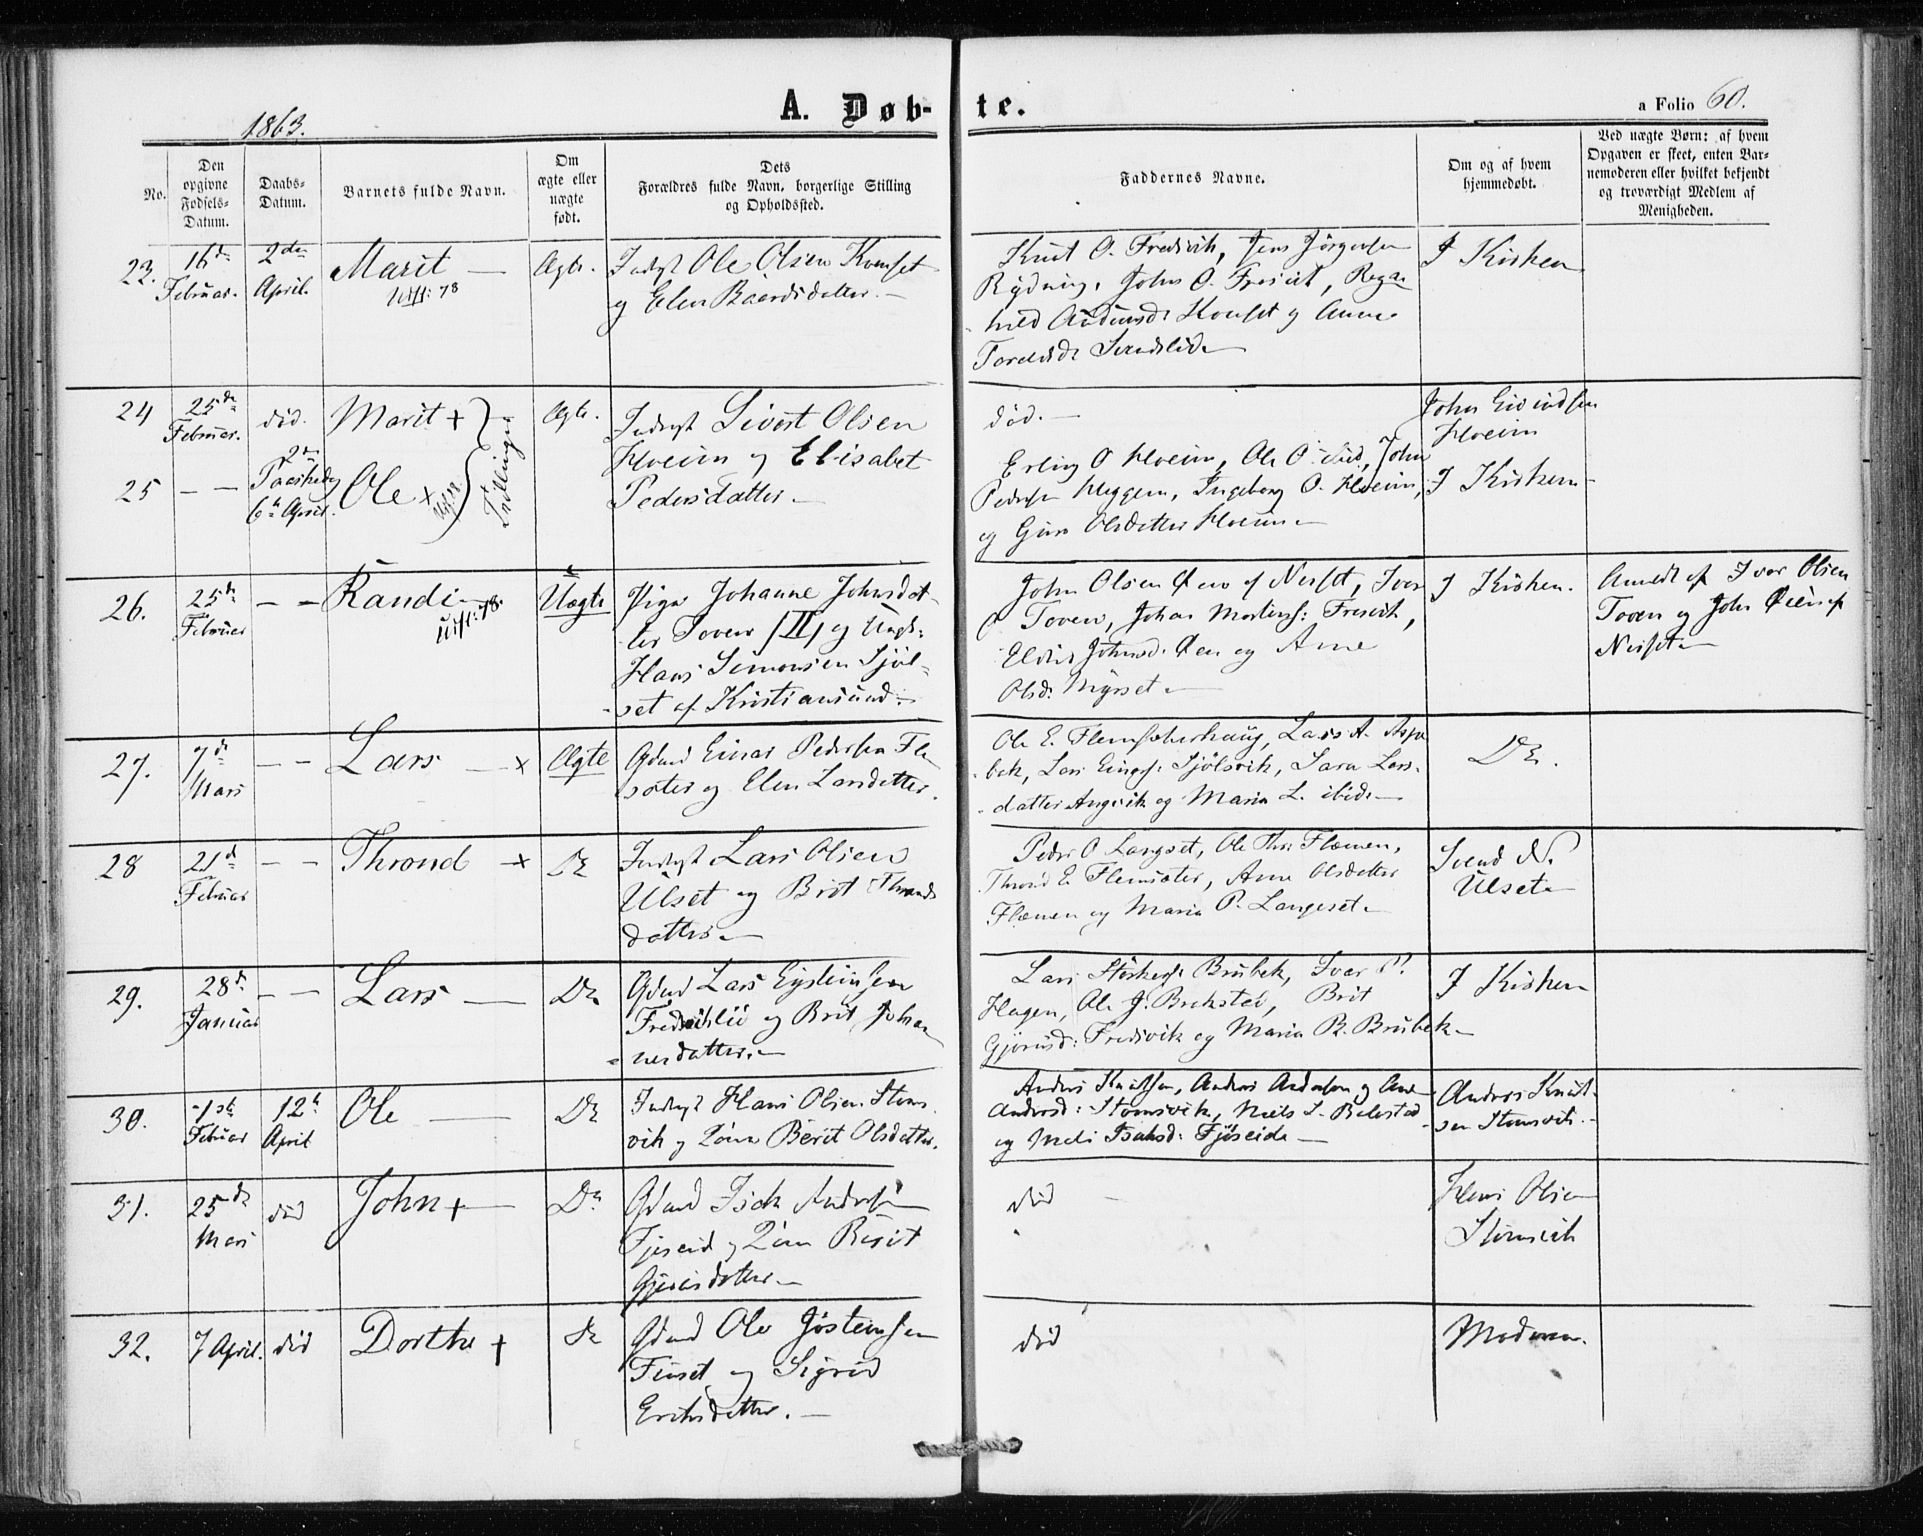 1863.
A. Døb-
te.
a Folio 60.
No.
Den
opgivne
Fødsels-
Datum.
Daabs-
Datum.
Barnets fulde Navn.
Om
ægte eller
uægte
født.
Dets
Forældres fulde Navn, borgerlige Stilling
og Opholdssted.
Faddernes Navne.
Om og af hvem
hjemmedøbt.
Ved uægte Børn: af hvem
Opgaven er skeet, enten Bar-
nemoderen eller hvilket bekjendt
og troværdigt Medlem af
Menigheden.
23.
16de
Februar.
2den
April.
Marit
Ægte.
Inderst Ole Olsen
og Elen Baardsdatter.
Knut O. Fredsvik, Jens Jørgensen
Rydning, John O. Fredsvik,
og Anne
I Kirken
24
25de
Februar.
død.
Marit +
Ægte.
Inderst Sivert Olsen
Hoeim og Elisabet
Pedersdatter
død.
John Eivindsen
Hoeim
25
2den
Paaskedag
6te April.
Ole x
Tvillinger
Erling O Hoeim, Ole O. Lied, John
Pedersen Heggem, Ingeborg O. Hoeim,
og Guro Olsdatter Hoeim
I Kirken
26.
25de
Februar
Randi
Uægte
Pige Johanne Johnsdat-
ter Toven [II] og Ungk:
Hans Simonsen Sjöl-
set af Kristiansund.
John Olsen Øien af Nerset, Ivar
O Toven, Johan Mortens: Fredsvik,
Johnsd. Øien og Ane
Olsd. Myrset
I Kirken.
Anmeldt af Ivar Olsen
Toven og John Øien af
Nerset
27.
7de
Mars
Lars x
Ægte
Gdmd Einar Pedersen Flem-
sæter og Elen Larsdatter.
Ole E. Flemsæterhaug, Lars A. Aspe-
bek, Lars Einars: Sjölsvik, Sara Lars-
datter Angvik og Maria L. ibid.
Do.
28
21de
Februar
Thrond x
Do
Inderst Lars Olsen
Ulset og Brit Thronds
datter
Peder O Langset, Ole Thr: Flemmen,
Thrond E. Flemsæter, Ane Olsdatter
Flemmen og Maria P. Langeset
Svend N.
Ulset
29.
28de
Januar
Lars
Do
Gdmd Lars Eysteinsen
Fredsvikslii og Brit Johan-
nesdatter.
Lars Brubek, Ivar P.
Hagen, Ole J. Brekstad, Brit
Gjörmsd: Fredsvik og Maria R. Brubek
I Kirken
30.
1ste
Februar
12te
April
Ole
Do
Inderst Hans Olsen Stoms-
vik og Kone Berit Olsdatter.
Anders Knutsen, Anders Andersen og Ane
Andersd: Stomsvik, Niels L. Bolstad
og Meli Isaksd: Fjöseide
Anders Knut-
sen Stomsvik.
31.
25de
Mars
død
John +
Do
Gdmd Isak Andersen
Fjöseid og Kone Berit
Gjörmsdatter
død
Hans Olsen
Stomsvik
32.
7 April.
død
Dorthe +
Do
Gdmd Ole Jösteinsen
Finset og Sigrid
Eriksdatter.
død
Moderen.